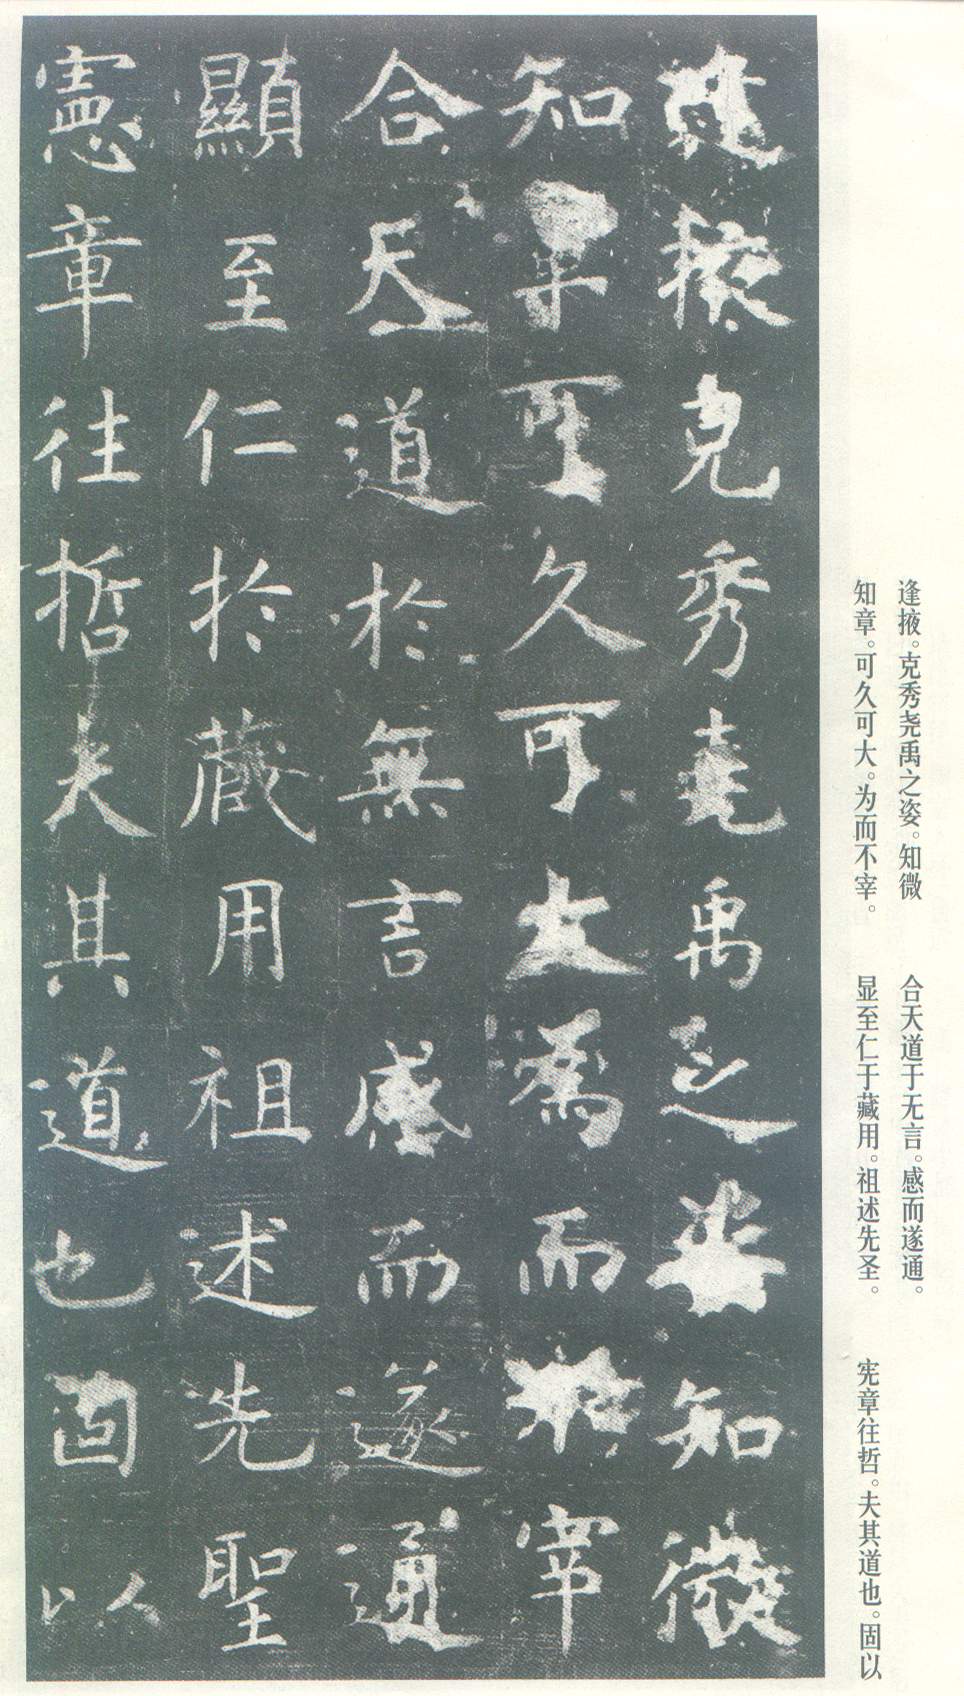 逢掖克秀堯禹之姿知微
知章可久可大為而不宰
合天道於無言感而遂通
顯至仁於藏用祖述先聖
憲章往哲夫其道也固以
逢掖。克秀尧禹之姿。知微
知章。可久可大。为而不宰。
合天道于无言。感而遂通。
显至仁于藏用。祖述先圣。
宪章往哲。夫其道也。固以